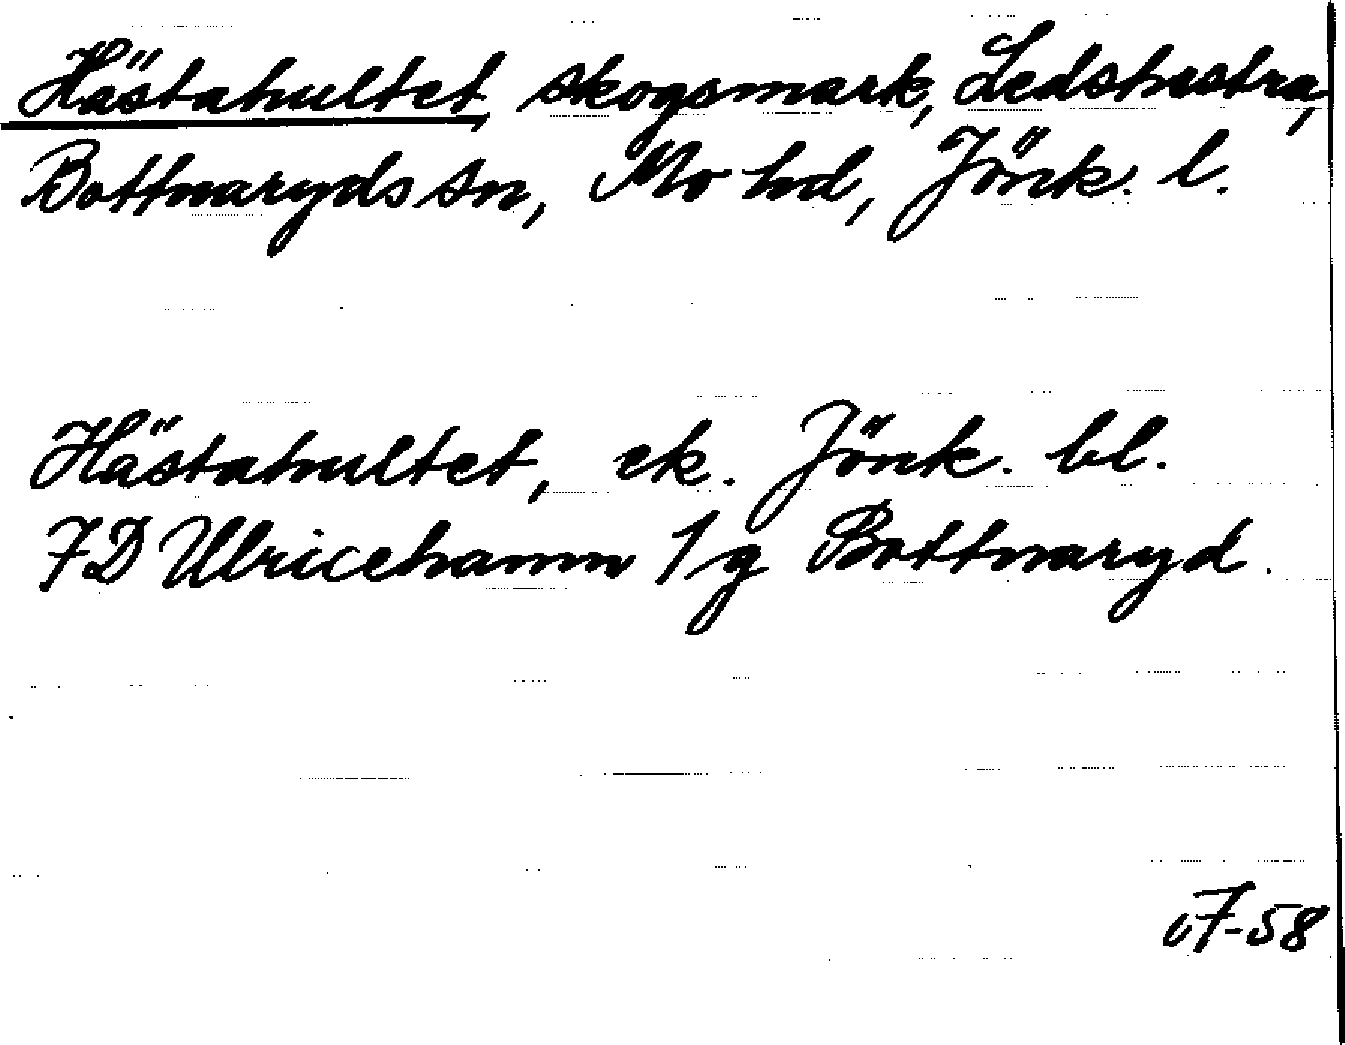 Hästahultet, skogsmark, Ledstastra,
Bottnaryds sn, Mo hd, Jönk. l.
Hästahultet, ek. Jönk. bl.
7D Ulricehamn 1g Bottnaryd.
07-58